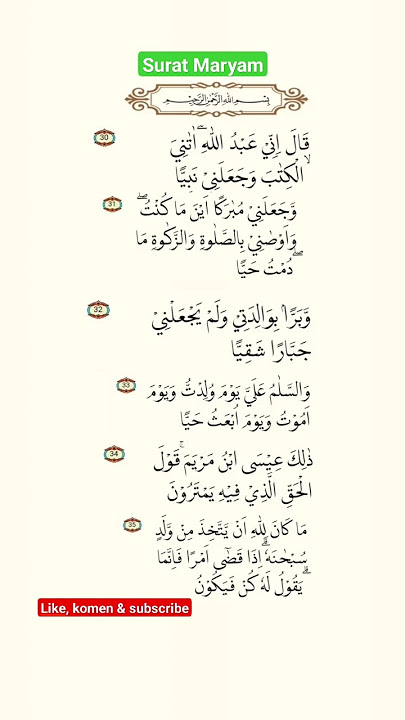 Surat Maryam
بِسْمِ اللهِ الرَّحْمٰنِ الرَّحِيْمِ
30
قَالَ اِنِّيْ عَبْدُ اللّٰهِ ۗ اٰتٰنِيَ
الْكِتٰبَ وَجَعَلَنِيْ نَبِيًّا ۙ
31
وَّجَعَلَنِيْ مُبٰرَكًا اَيْنَ مَا كُنْتُ ۖ
وَاَوْصٰنِيْ بِالصَّلٰوةِ وَالزَّكٰوةِ مَا
دُمْتُ حَيًّا ۖ
32
وَّبَرًّا ۢبِوَالِدَتِيْ وَلَمْ يَجْعَلْنِيْ
جَبَّارًا شَقِيًّا
33
وَالسَّلٰمُ عَلَيَّ يَوْمَ وُلِدْتُّ وَيَوْمَ
اَمُوْتُ وَيَوْمَ اُبْعَثُ حَيًّا
34
ذٰلِكَ عِيْسَى ابْنُ مَرْيَمَ ۚ قَوْلَ
الْحَقِّ الَّذِيْ فِيْهِ يَمْتَرُوْنَ
35
مَا كَانَ لِلّٰهِ اَنْ يَّتَّخِذَ مِنْ وَّلَدٍ
سُبْحٰنَهٗ ۗ اِذَا قَضٰٓى اَمْرًا فَاِنَّمَا
يَقُوْلُ لَهٗ كُنْ فَيَكُوْنُ ۗ
Like, komen & subscribe